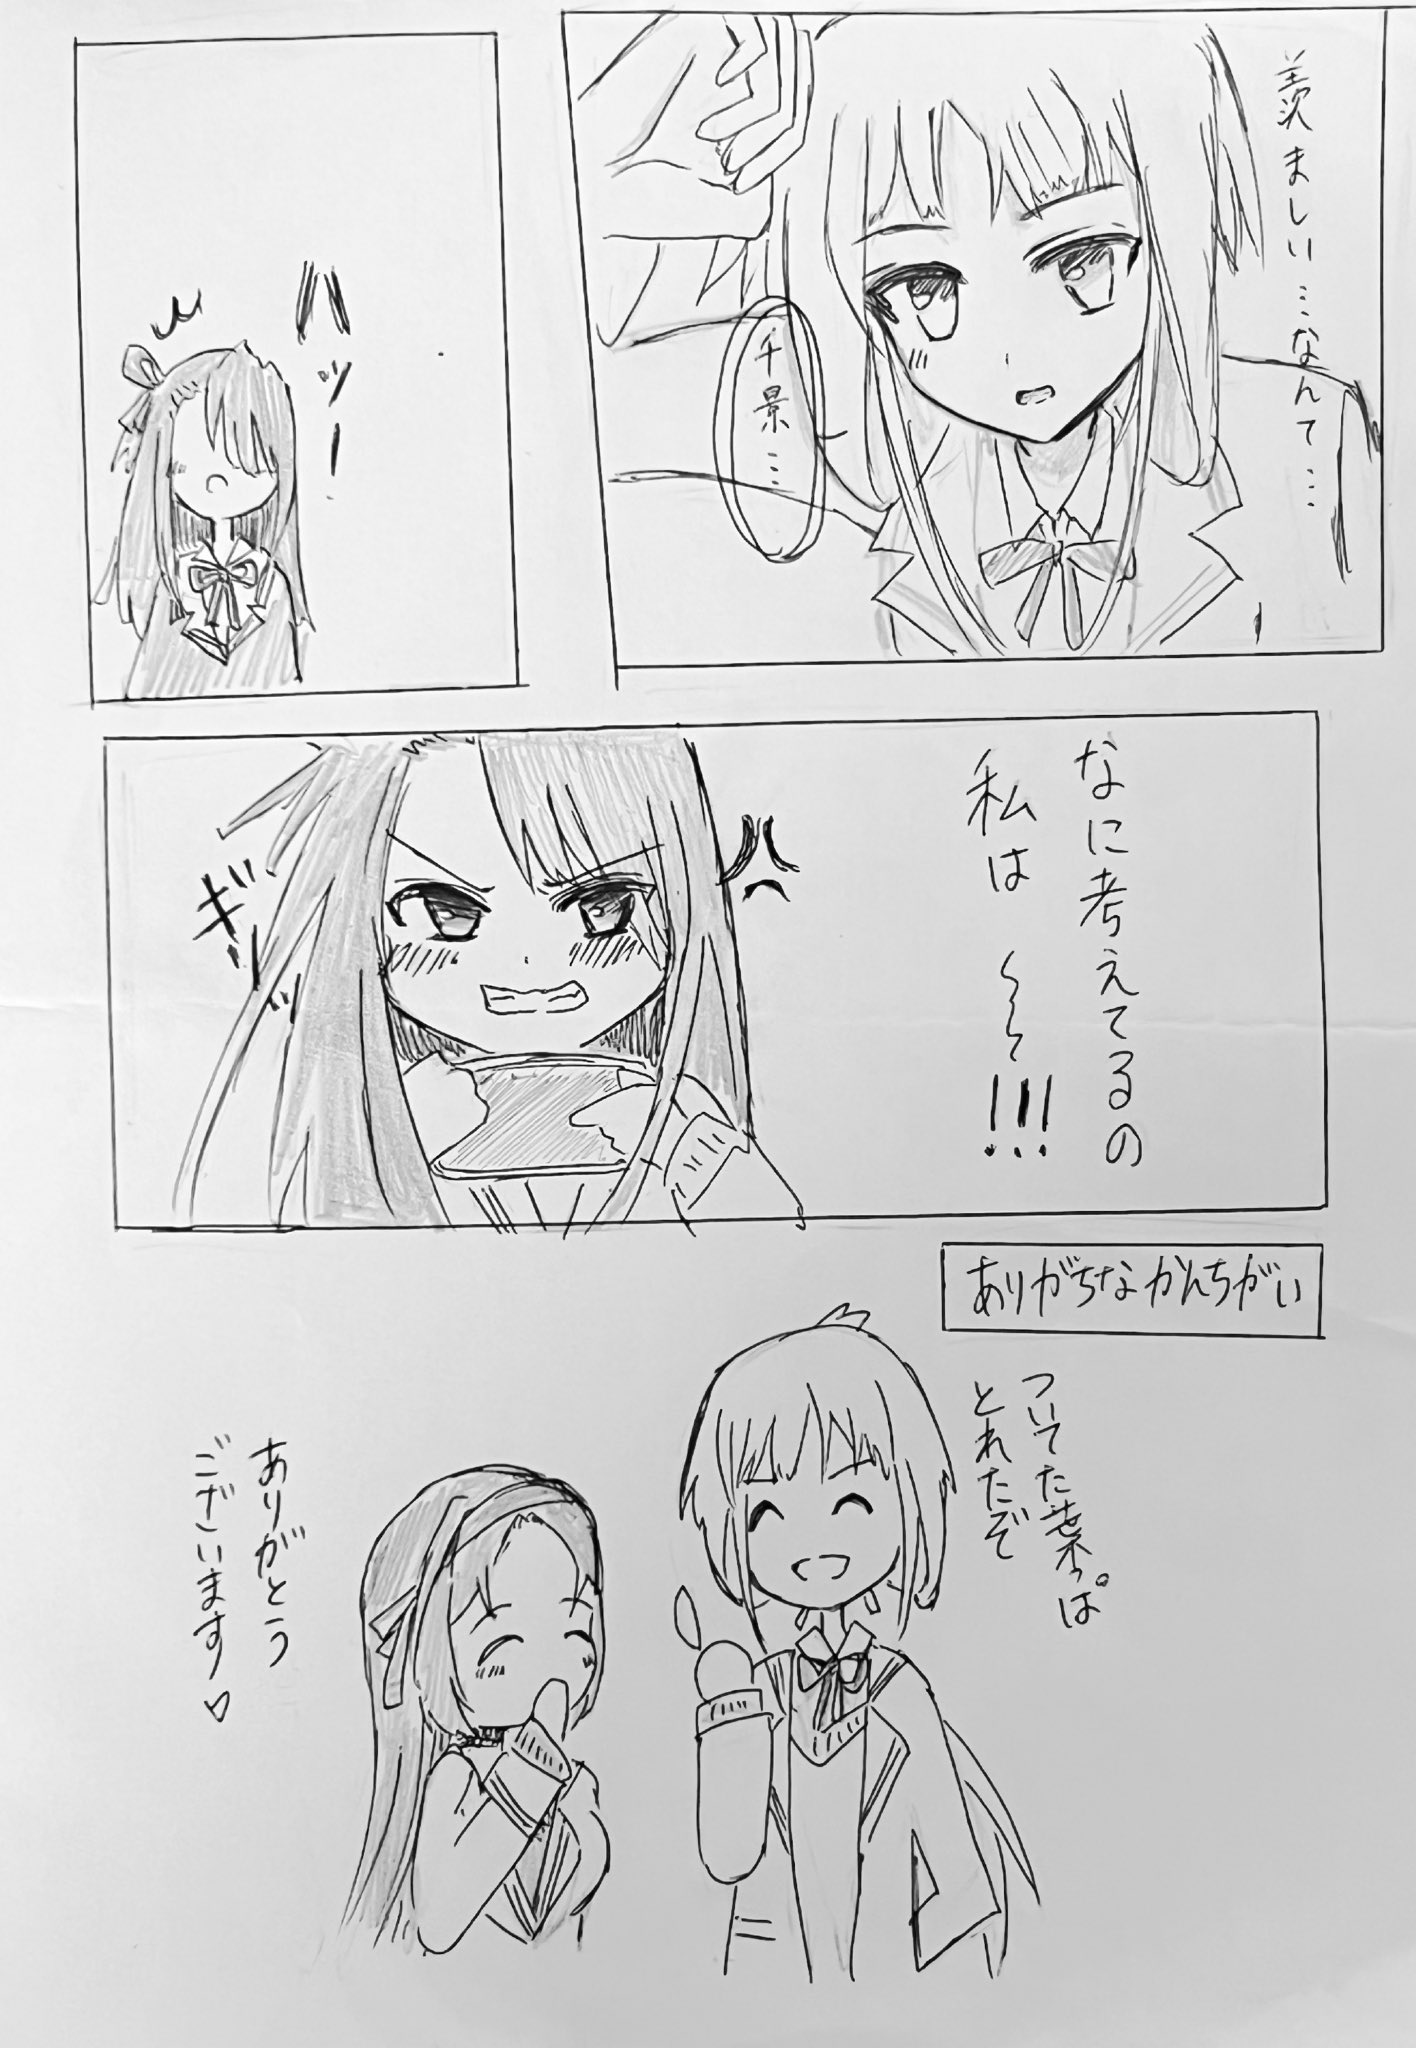 羨ましい…なんて…
千景…
ハッ!
なに考えてるの
私は〜〜!!!
ギリッ
ありがちなかんちがい
ついてた葉っぱ
とれたぞ
ありがとう
ございます♡